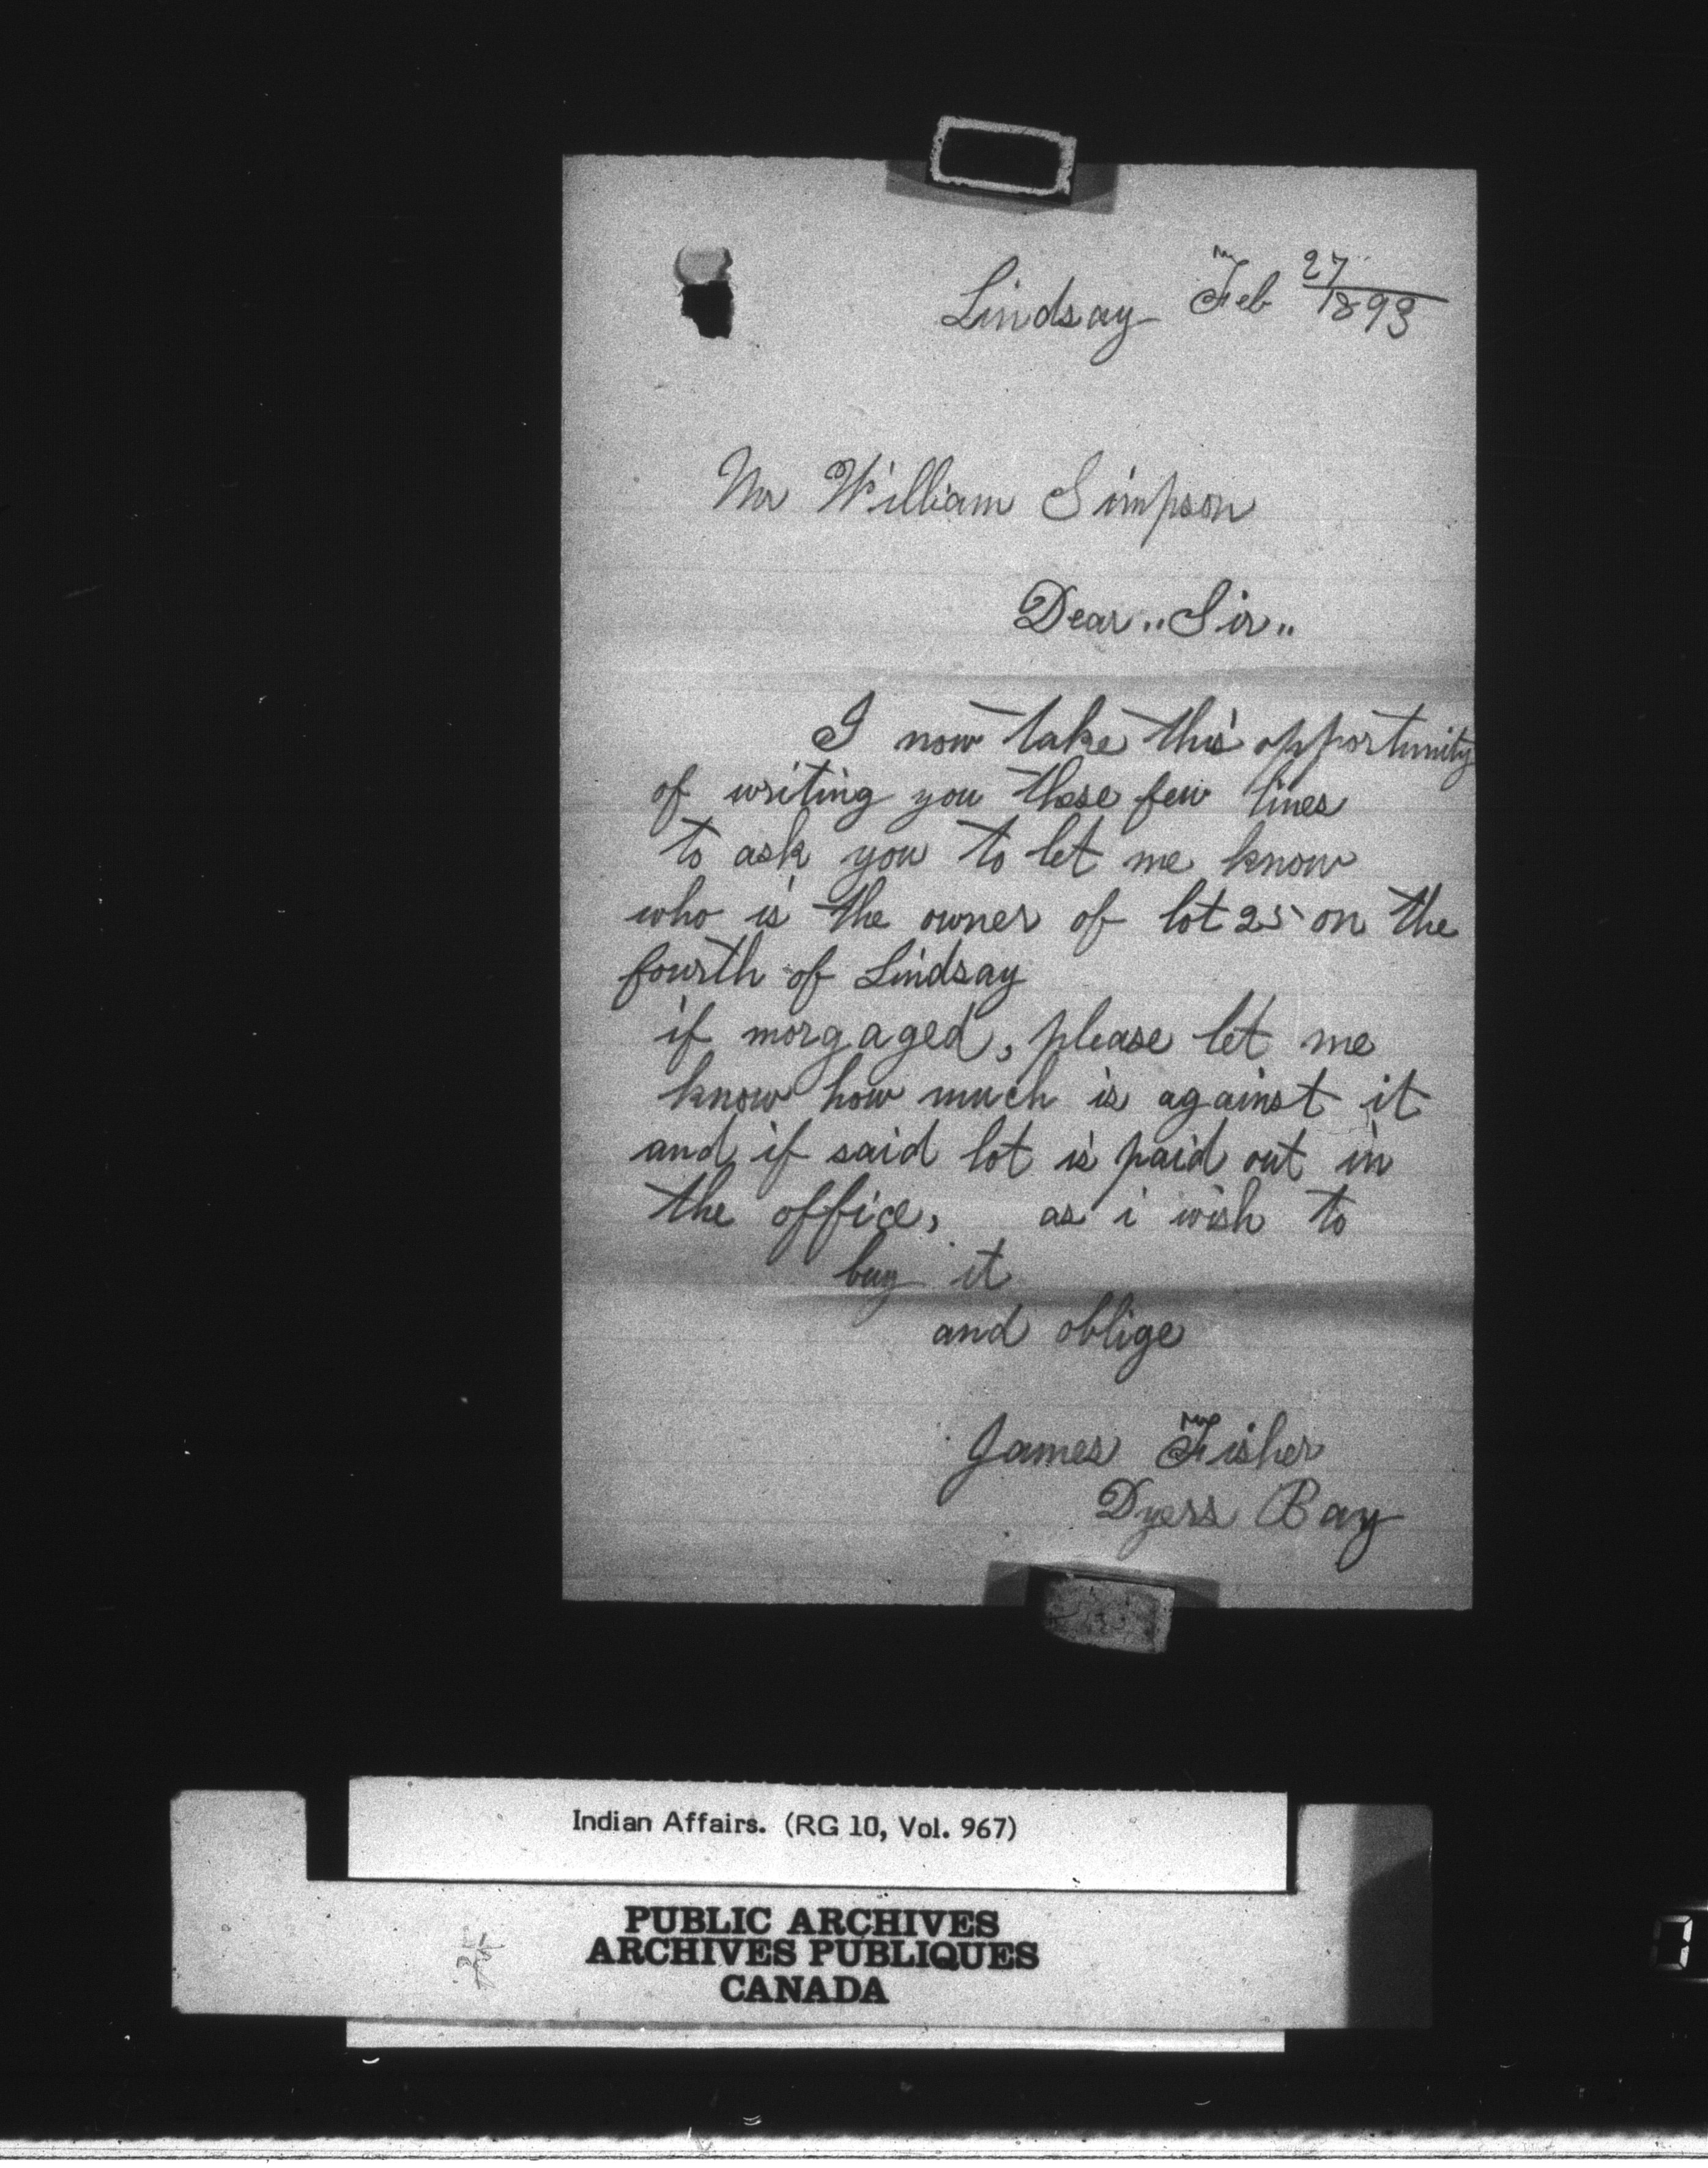 Lindsay Feb 27/1893
Mr William Simpson
Dear,, Sir,,
I now take this opportunity
of writing you these few lines
to ask you to let me know
who is the owner of lot 25 on the
fourth of Lindsay
if morgaged, please let me
know how much is against it
and if said lot is paid out in
the office, as i wish to
buy it
and oblige
James Fisher
Dyers Bay
Indian Affairs. (RG 10, Vol. 967)
PUBLIC ARCHIVES
ARCHIVES PUBLIQUES
CANADA